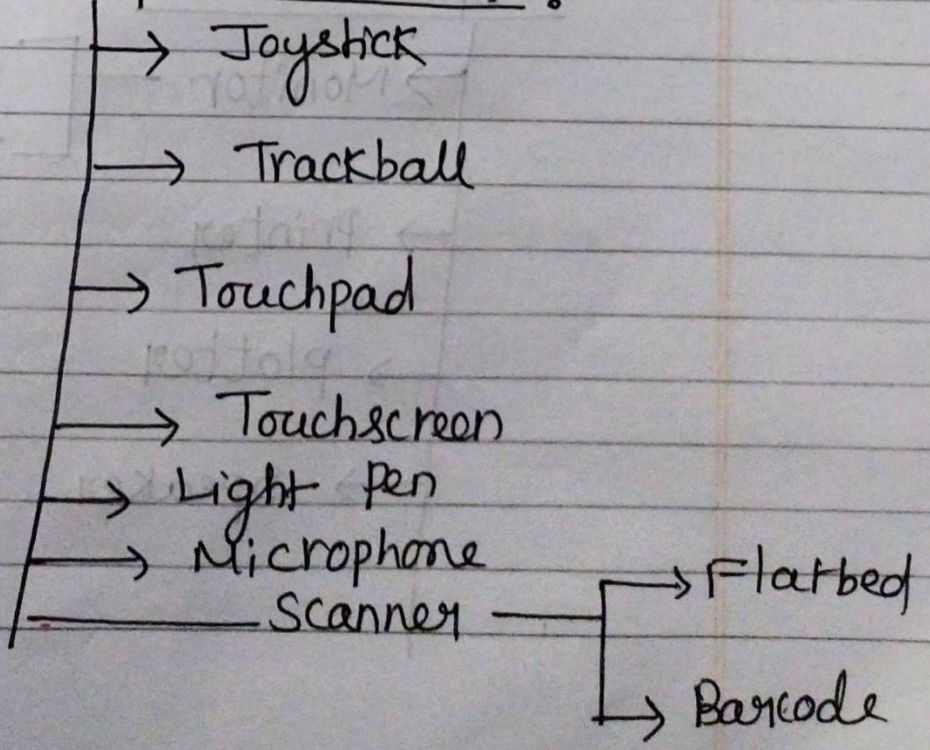 Joystick
Trackball
Touchpad
Touchscreen
Light Pen
Microphone
Scanner
Flatbed
Barcode